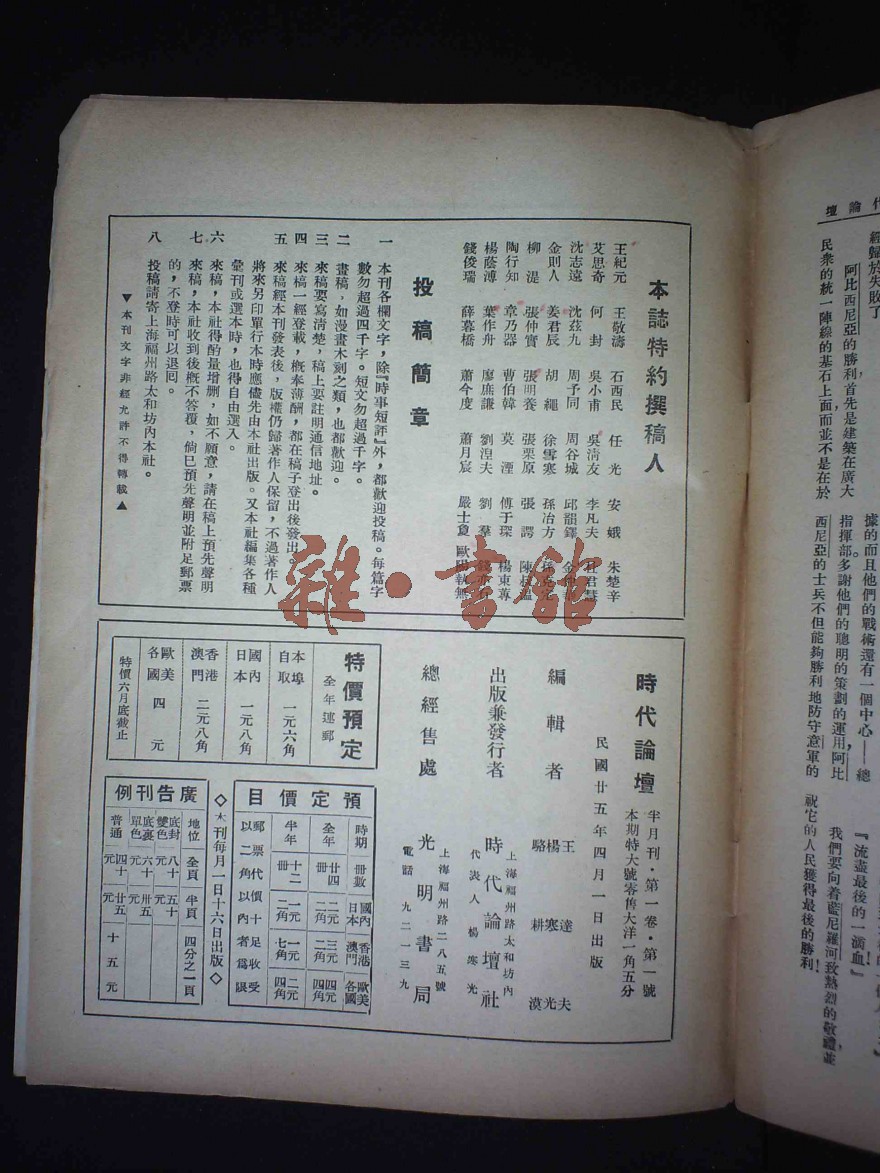 本誌特約撰稿人
王紀元 王敬濤 石西民 任光 安娥 朱楚辛
艾思奇 何封 吳小甫 吳清友 李凡夫 杜君慧
沈志遠 沈茲九 周予同 周谷城 邱韻鐸
金則人 姜君辰 胡繩 徐雪寒 孫冶方
柳湜 張仲實 張明養 張栗原 張諤
陶行知 章乃器 曹伯韓 莫湮 傅于琛 楊東蓴
楊蔭溥 葉作舟 廖庶謙 劉湼夫 劉羣
錢俊瑞 薛暮橋 蕭今度 蕭月宸 嚴士夐 歐陽執無
投稿簡章
一 本刊各欄文字，除『時事短評』外，都歡迎投稿。每篇字
數勿超過四千字。短文勿超過千字。
二 畫稿，如漫畫木刻之類，也都歡迎。
三 來稿要寫清楚，稿上要註明通信地址。
四 來稿一經登載，概奉薄酬，都在稿子登出後發出。
五 來稿經本刊發表後，版權仍歸著作人保留，不過著作人
將來另印單行本時應儘先由本社出版。又本社編集各種
彙刊或選本時，也得自由選入。
六 來稿，本社得酌量增删，如不願意，請在稿上預先聲明
七 來稿，本社收到後概不答覆，倘已預先聲明並附足郵票
的，不登時可以退囘。
八 投稿請寄上海福州路太和坊內本社。
▼本刊文字非經允許不得轉載▲
時代論壇
半月刊·第一卷·第一號
本期特大號零售大洋一角五分
民國廿五年四月一日出版
編輯者
王達夫
楊寒光
駱耕漠
出版兼發行者
上海福州路太和坊內
時代論壇社
代表人 楊寒光
總經售處
上海福州路二八五號
光明書局
電話九二一三九
特價預定
全年連郵
本埠自取 一元六角
國內日本 一元八角
香港澳門 二元八角
歐美各國 四元
特價六月底截止
預定價目
時期 冊數 國內日本 香港澳門 歐美各國
全年 廿四冊 二元二角 三元二角 四元四角
半年 十二冊 一元二角 一元七角 二元四角
郵票代價十足收受
以二角以內者爲限
◇本刊每月一日十六日出版◇
廣告刊例
地位 全頁 半頁 四分之一頁
底封雙色 八十元 五十元
底裏單色 六十元 卅五元
普通 四十元 廿五元 十五元
代論壇
經歸於失敗了
阿比西尼亞的勝利首先是建築在廣大
民衆的統一陣線的基石上面，而並不是在於
據的而且他們的戰術還有一個中心——總
指揮部多謝他們的聰明的策劃的運用，阿比
西尼亞的士兵不但能夠勝利地防守意軍的
『流盡最後的一滴血』！
我們要向着藍尼羅河致熱烈的敬禮並
祝它的人民獲得最後的勝利！
雜·書館